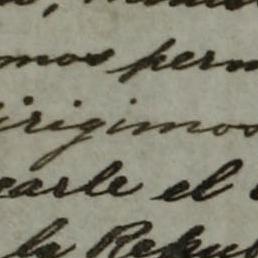 mos perm
irigimos
carle el
la Repub